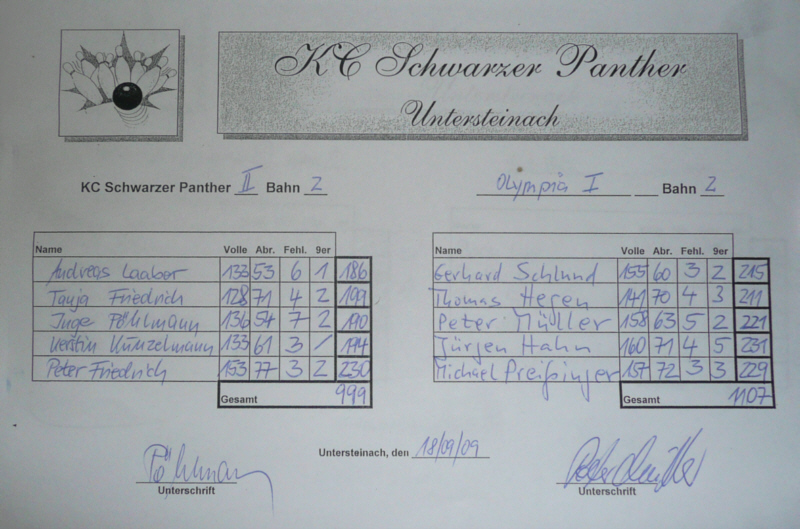 KC Schwarzer Panther
Untersteinach
KC Schwarzer Panther II Bahn 2
Olympia I Bahn 2
Name Volle Abr. Fehl. 9er
Andreas Laaber 133 53 6 1 186
Tanja Friedrich 128 71 4 2 199
Inge Pöhlmann 136 54 7 2 190
Kerstin Künzelmann 133 61 3 / 194
Peter Friedrich 153 77 3 2 230
Gesamt 999
Name Volle Abr. Fehl. 9er
Gerhard Schlund 155 60 3 2 215
Thomas Hegen 141 70 4 3 211
Peter Müller 158 63 5 2 221
Jürgen Hahn 160 71 4 5 231
Michael Preißinger 157 72 3 3 229
Gesamt 1107
Untersteinach, den 18/09/09
Pöhlmann
Unterschrift
Peter Müller
Unterschrift